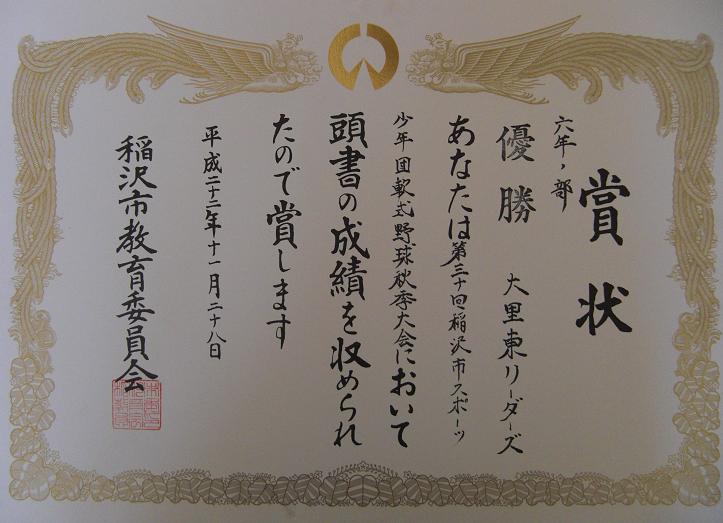 賞状
六年ノ部
優勝 大里東リーダーズ
あなたは第三十回稲沢市スポーツ
少年団軟式野球秋季大会において
頭書の成績を収められ
たので賞します
平成二十二年十一月二十八日
稲沢市教育委員会